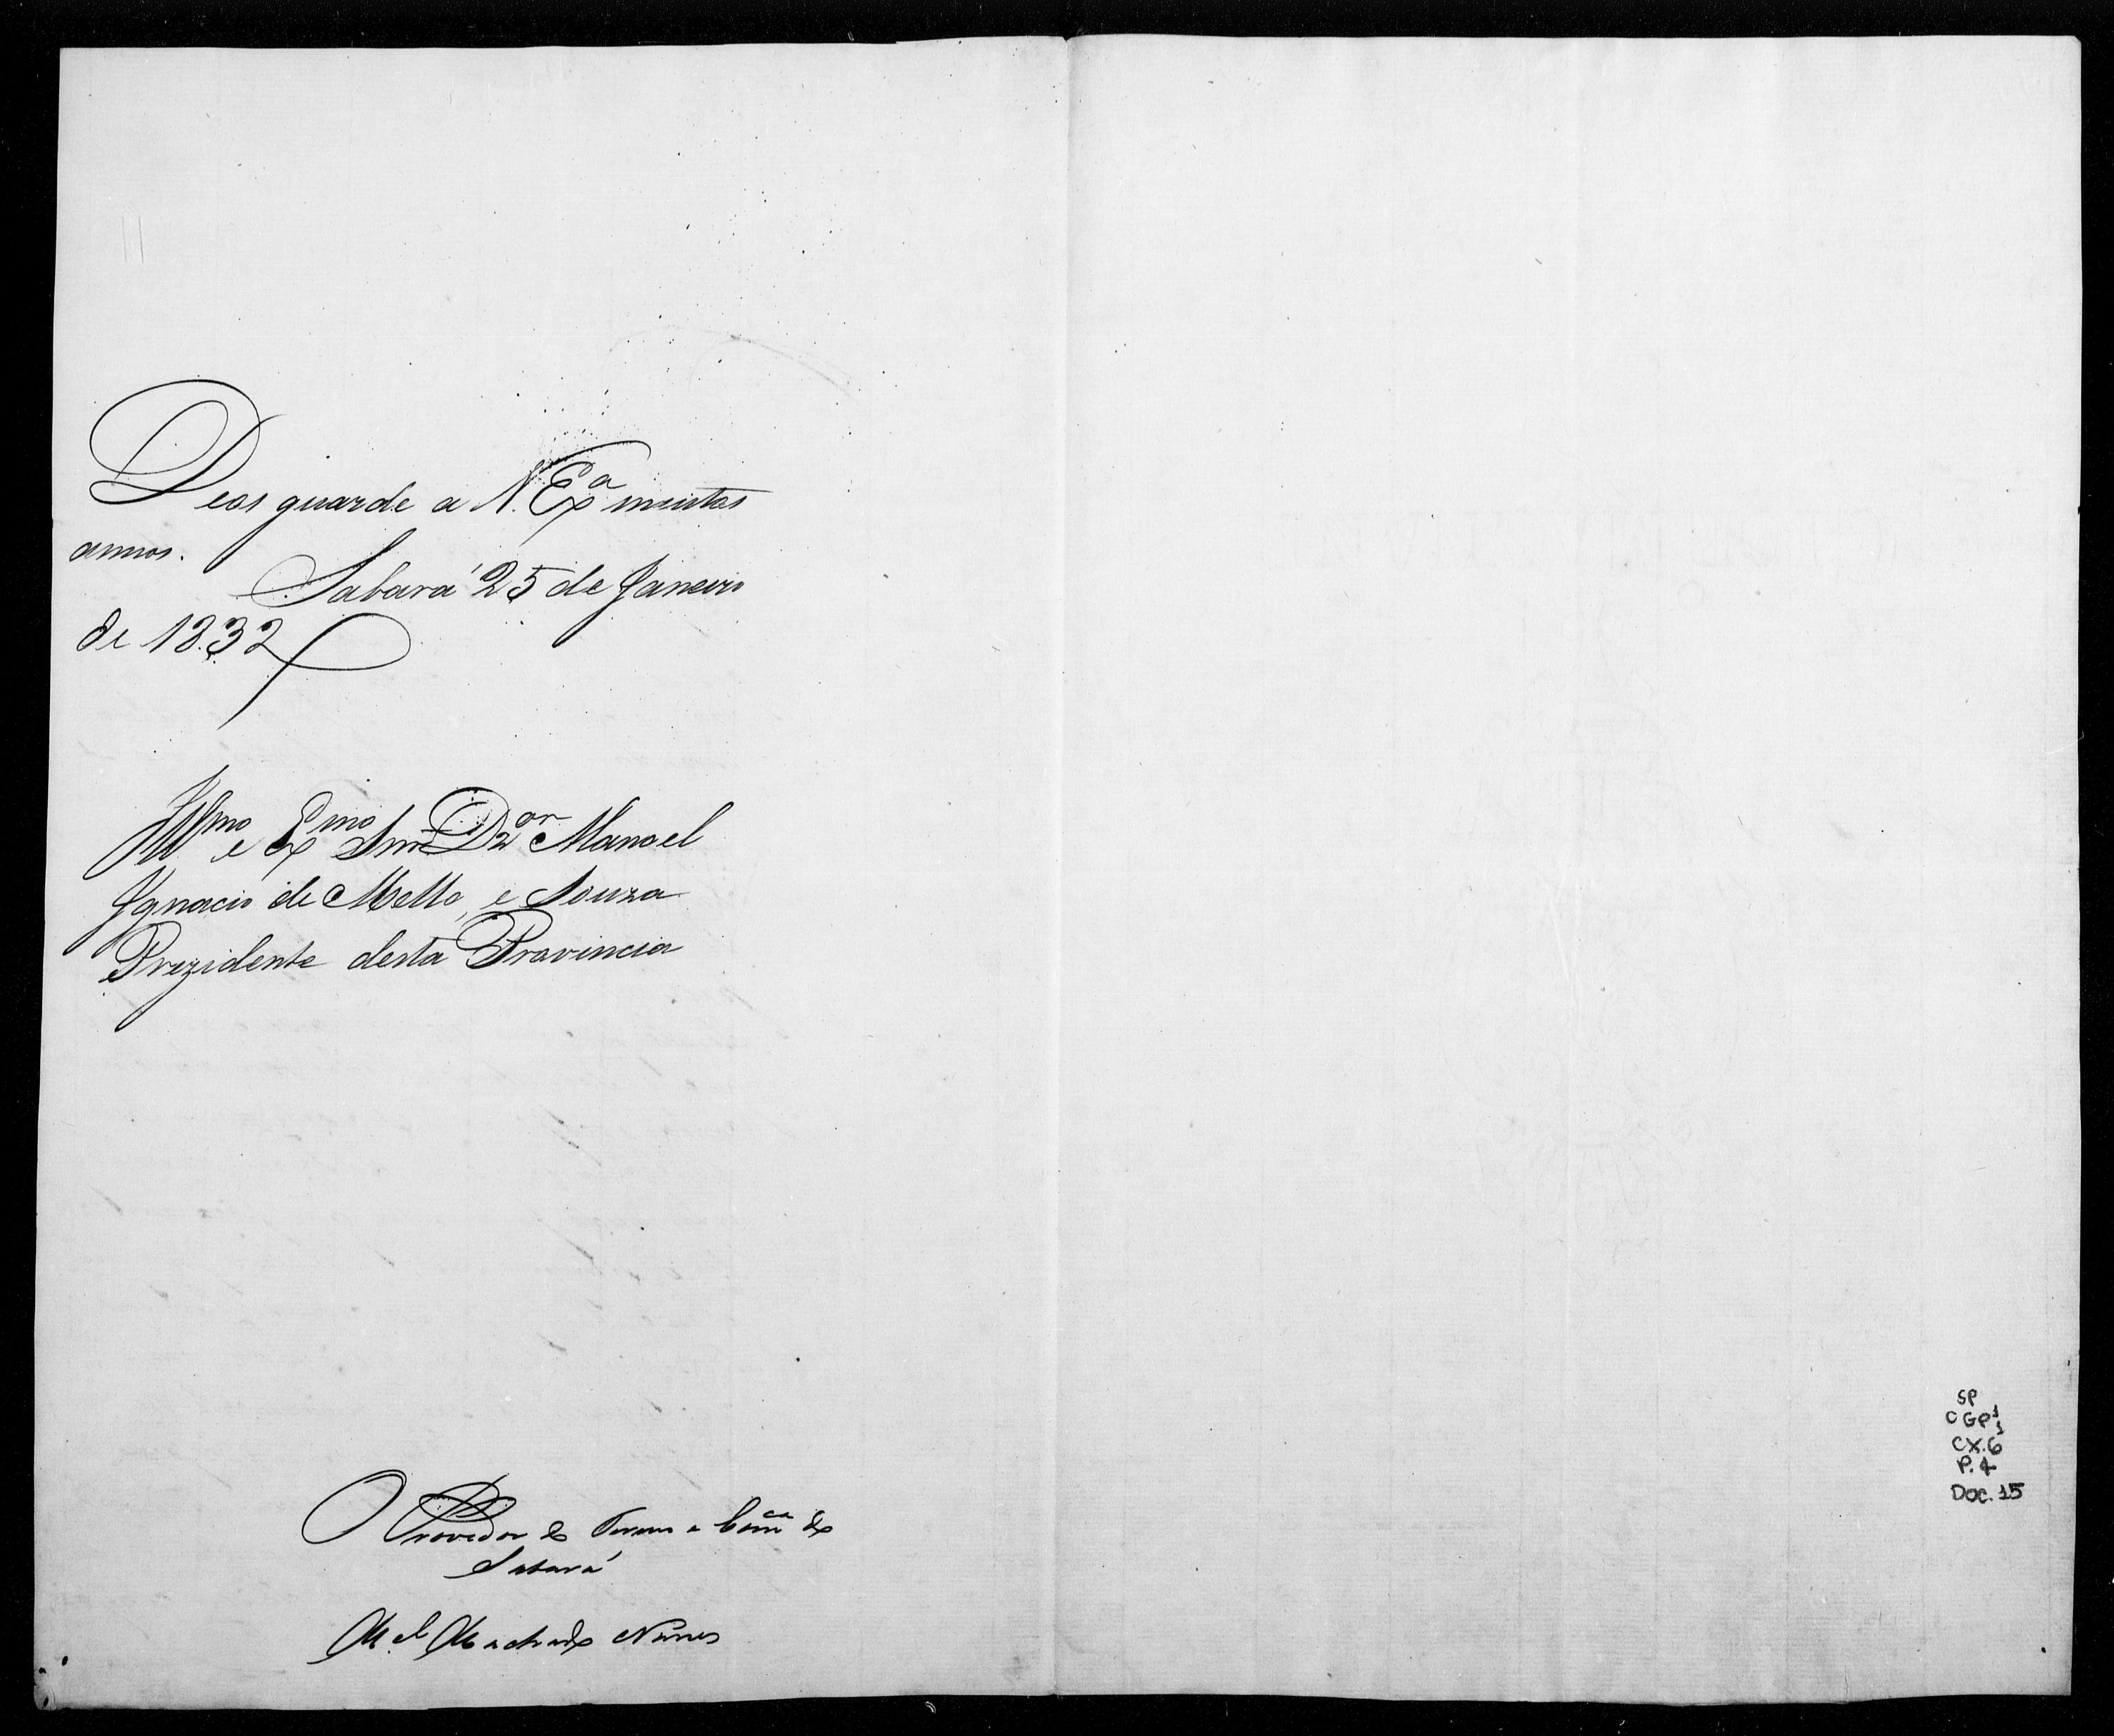 Deos guarde a V. Exª muitos
annos.
Sabará 25 de Janeiro
de 1832
Illmo e Exmo Snr Dor Manoel
Ignacio de Mello, e Souza
Prezidente desta Provincia
O Provedor da Comca de
Sabará
Mel Machado Nunes
SP
GP1
CX.6
P.4
Doc. 15